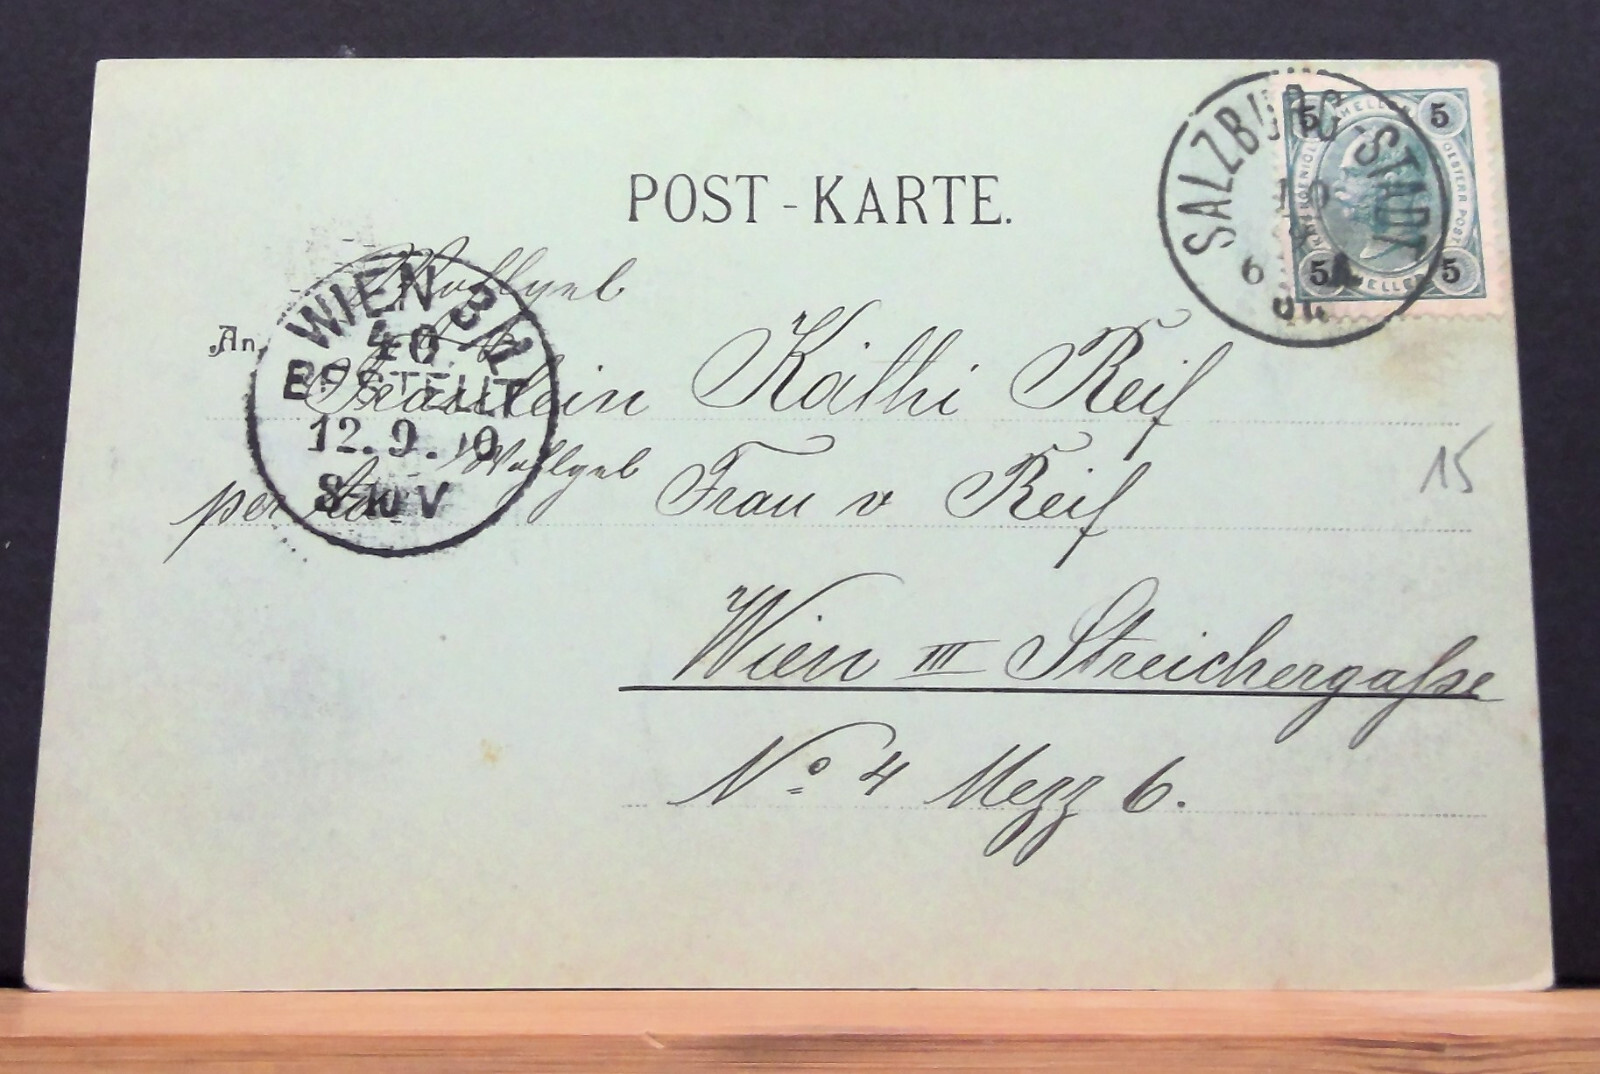 POST-KARTE.
SALZBURG-STADT
5 HELLER 5
OESTERR POST
5 HELLER 5
6
WIEN 3/1
40
BESTELLT
12.9.
8-10V
Wohlgeb
An
Fräulein Käthi Reif
Wohlgeb
per Frau v Reif
15
Wien III Streichergaſse
No 4 Mezz 6.